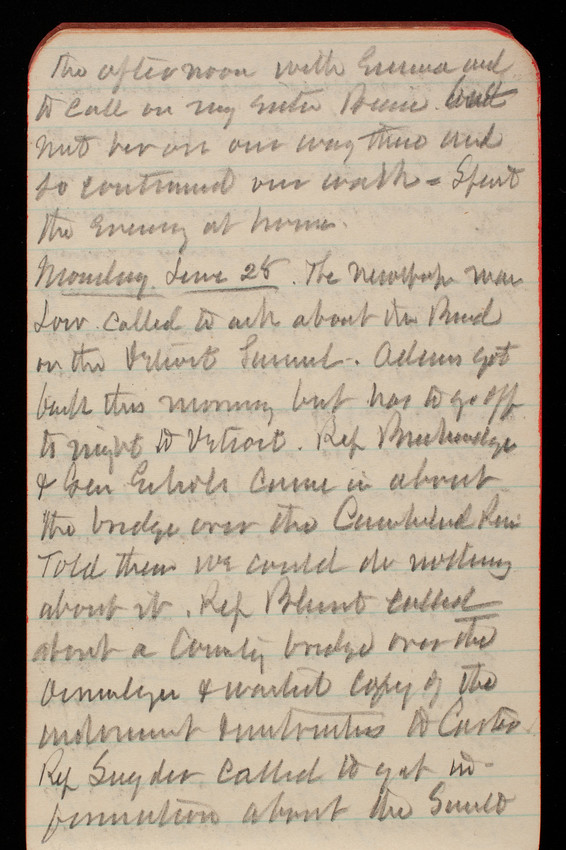 the afternoon with Emma and
to call on my sister Bessie. but
met her on our way there and
so continued our walk = Spent
the Evening at home.
Monday June 28. The newspaper man
Low called to ask about the Board
on the Detroit Tunnel. Adams got
back this morning but has to go off
to night to Detroit. Rep Breckenridge
& Gen Echols came in about
the bridge over the Cumberland River
Told them we could do nothing
about it. Rep Blunt called
about a County bridge over the
Ocmulgee & wanted copy of the
indorsement & instructions to Carter.
Rep Snyder called to get in-
formation about the